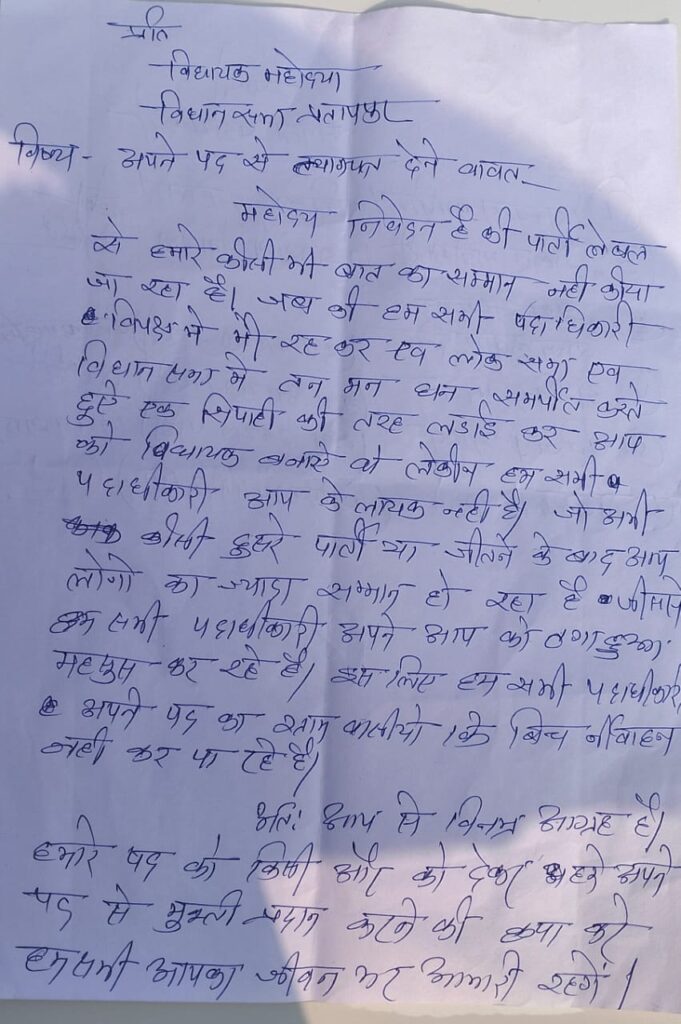 प्रति
विधायक महोदया
विधान सभा प्रतापपुर
विषय - अपने पद से त्यागपत्र देने बावत
महोदय निवेदन है की पार्टी लेबल
से हमारे कीसी भी बात का सम्मान नही कीया
जा रहा है। जब की हम सभी पदाधिकारी
विपक्ष मे भी रह कर एव लोक सभा एव
विधान सभा मे तन मन धन समर्पीत करते
हुऐ एक सिपाही की तरह लडाई कर आप
को विधायक बनाऐ थे लेकीन हम सभी
पदाधीकारी आप के लायक नही है। जो अभी
कीसी दुसरे पार्टी या जीतने के बाद आए
लोगो का ज्यादा सम्मान हो रहा है जीससे
हम सभी पदाधीकारी अपने आप को ठगा हुआ
महसुस कर रहे है। इस लिए हम सभी पदाधीकारी
अपने पद का ग्राम वासीयो के बिच र्नीवाहन
नही कर पा रहे है।
अतः आप से विनम्र आग्रह है।
हमारे पद को किसी और को देकर हमे अपने
पद से मुक्ती प्रदान करने की कृपा करे
हम सभी आपका जीवन भर आभारी रहगें।